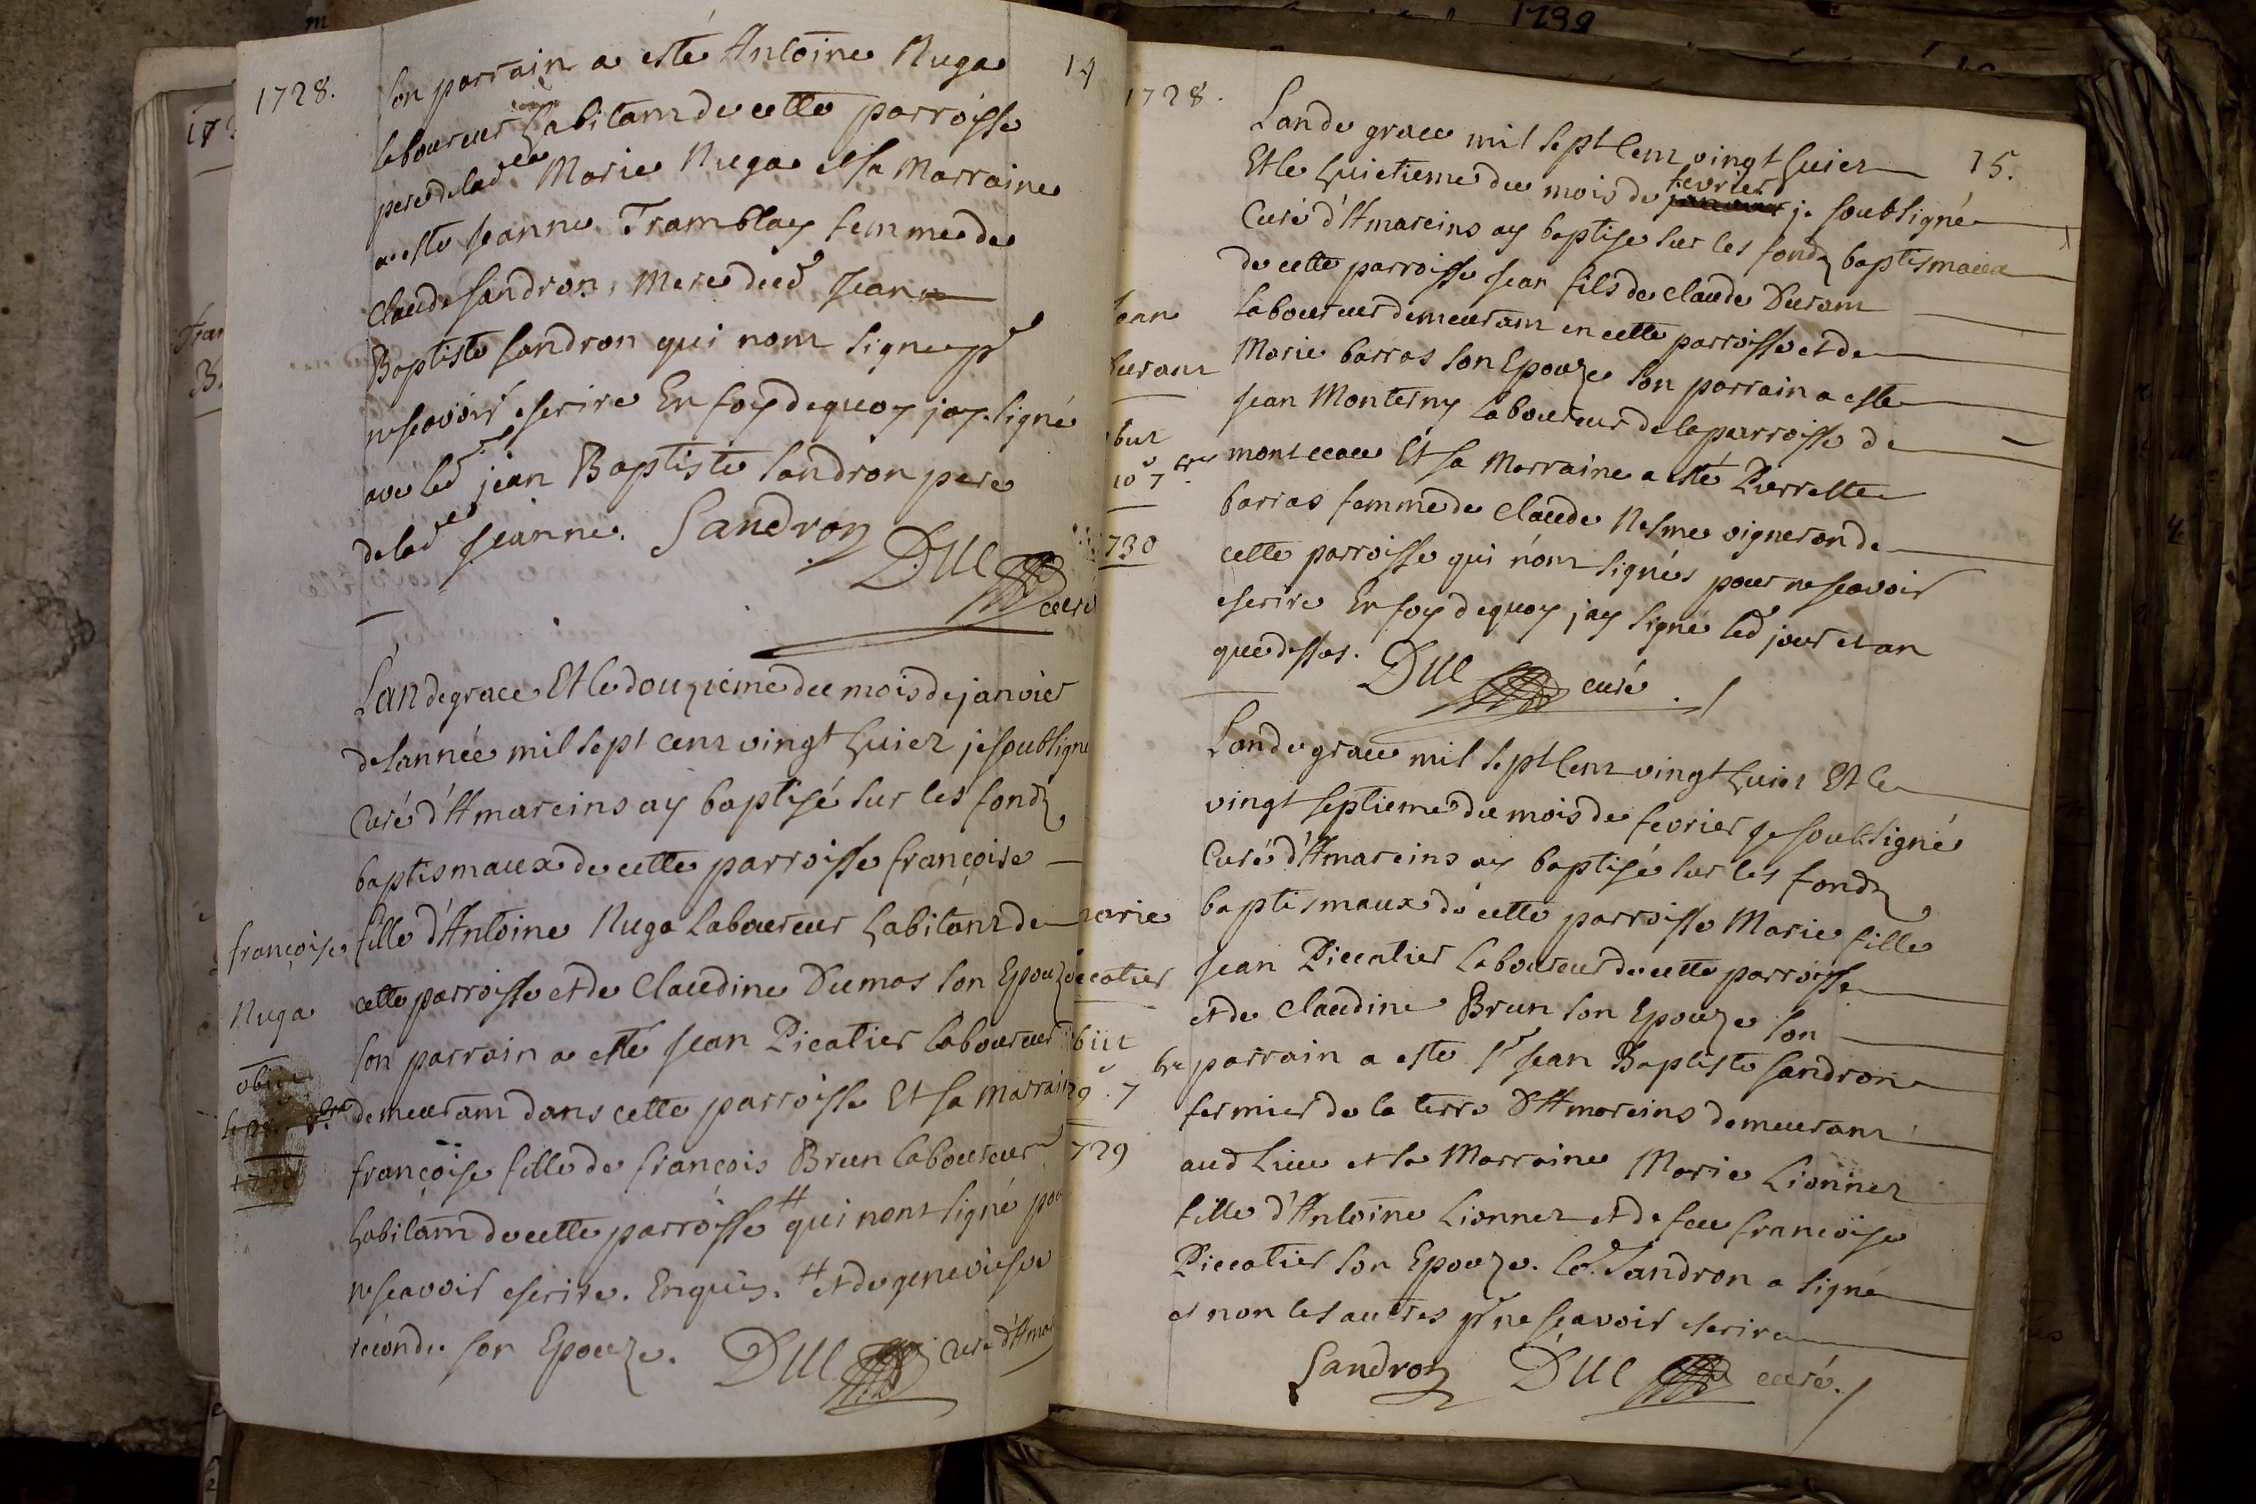 1728.
14
son parrain a esté Antoine Nuga
laboureur habitant de cette parroisse
pere de lad Marie Nuga et sa Marraine
a esté jeanne Tramblay femme de
Claude sandron, Mere dud jean
Baptiste sandron qui nont signe pr
ne scavoir escrire En foy de quoy jay signé
avec led jean Baptiste sandron pere
de lad jeanne. Sandron
Duc curé
Lan de grace Et le douzieme du mois de janvier
de lannée mil sept cent vingt huict je soubsigne
Curé d'Amareins ay baptisé sur les fondz
baptismaux de cette parroisse françoise
fille d'Antoine Nuga Laboureur habitant de
cette parroisse et de Claudine Dumas son Epouze
son parrain a esté jean Picatier laboureur
demeurant dans cette parroisse Et sa marraine
françoise fille de françois Brun laboureur
habitant de cette parroisse # qui nont signé pour
ne scavoir escrire. Enquis. # et de genevieve
seconde son Epouze. Duc Curé d'Amar
françoise
Nuga
obiit
1728.
15.
Lan de grace mil sept cent vingt huict
Et le huictieme du mois de janvier fevrier je soubsigné
Curé d'Amareins ay baptisé sur les fondz baptismaux
de cette parroisse jean fils de Claude Durant
laboureur demeurant en cette parroisse et de
Marie barras son Epouze son parrain a esté
jean Monterny laboureur de la parroisse de
monteceau Et sa Marraine a esté Pierrette
barras femme de Claude Nesme vigneron de
cette parroisse qui n'ont signés pour ne scavoir
escrire En foy de quoy jay signé led jour et an
que dessus. Duc curé
Lan de grace mil sept cent vingt huict Et le
vingt septieme du mois de fevrier je soubsigné
Curé d'Amareins ay baptisé sur les fondz
baptismaux de cette parroisse Marie fille
jean Piccatier laboureur de cette parroisse
et de Claudine Brun son Epouze son
parrain a esté Sr jean Baptiste sandron
fermier de la terre d'Amareins demeurant
aud Lieu et la Marraine Marie Lionnet
fille d'Antoine Lionnet et de feue françoise
Piccatier son Epouze. led. Sandron a signé
et non les autres pr ne scavoir escrire
Sandron Duc curé.
Durant
10 7bre
730
obiit
29 7bre
729
1739